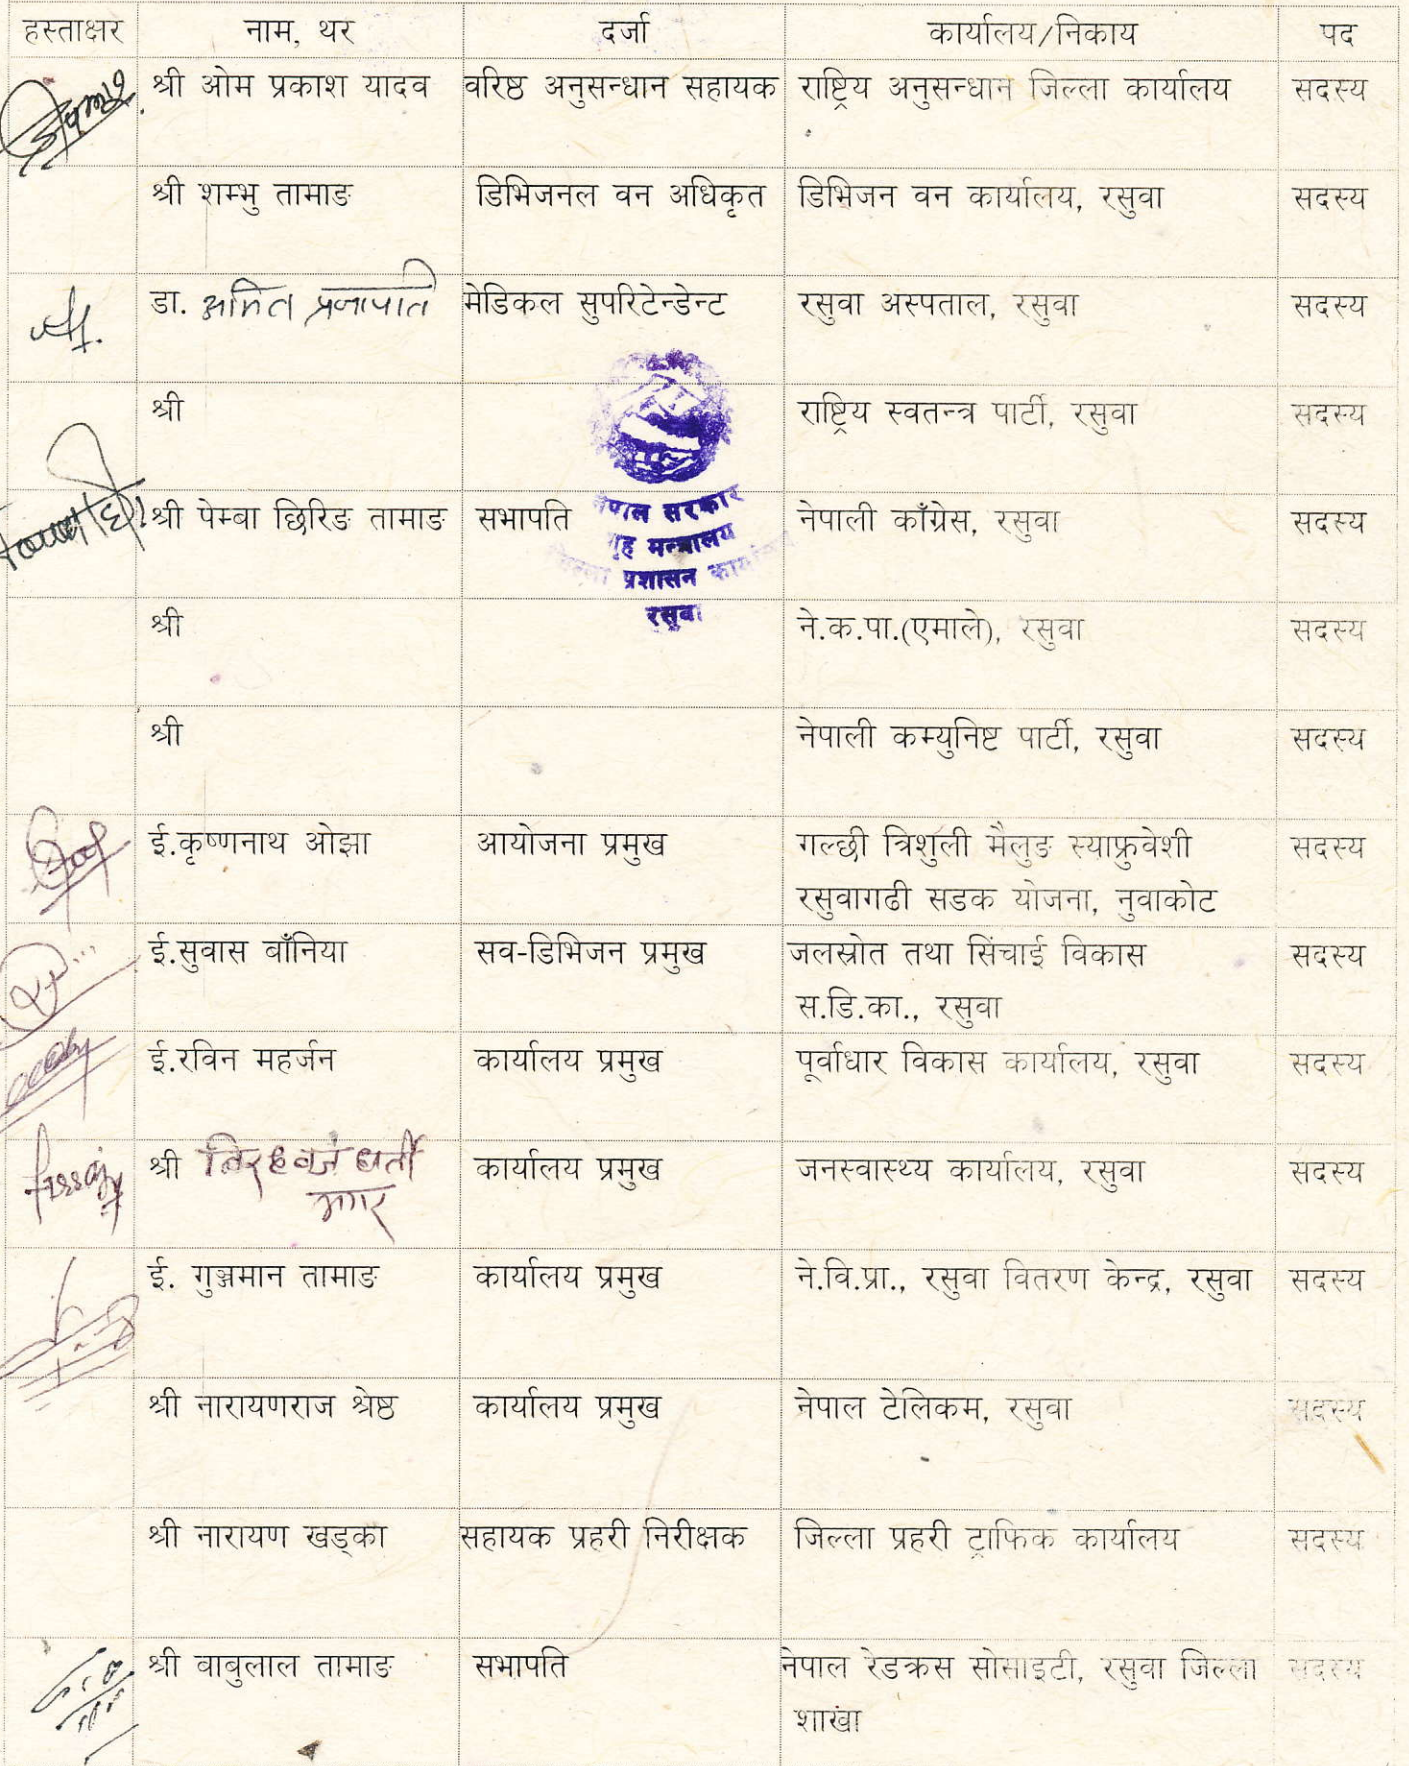 हस्ताक्षर नाम, थर दर्जा कार्यालय/निकाय पद
श्री ओम प्रकाश यादव वरिष्ठ अनुसन्धान सहायक राष्ट्रिय अनुसन्धान जिल्ला कार्यालय सदस्य
श्री शम्भु तामाङ डिभिजनल वन अधिकृत डिभिजन वन कार्यालय, रसुवा सदस्य
डा. अमित प्रजापति मेडिकल सुपरिटेन्डेन्ट रसुवा अस्पताल, रसुवा सदस्य
श्री राष्ट्रिय स्वतन्त्र पार्टी, रसुवा सदस्य
श्री पेम्बा छिरिङ तामाङ सभापति नेपाली काँग्रेस, रसुवा सदस्य
नेपाल सरकार
गृह मन्त्रालय
जिल्ला प्रशासन कार्यालय
रसुवा
श्री ने.क.पा.(एमाले), रसुवा सदस्य
श्री नेपाली कम्युनिष्ट पार्टी, रसुवा सदस्य
ई.कृष्णनाथ ओझा आयोजना प्रमुख गल्छी त्रिशुली मैलुङ स्याफ्रुवेशी सदस्य
रसुवागढी सडक योजना, नुवाकोट
ई.सुवास बाँनिया सव-डिभिजन प्रमुख जलस्रोत तथा सिंचाई विकास सदस्य
स.डि.का., रसुवा
ई.रविन महर्जन कार्यालय प्रमुख पूर्वाधार विकास कार्यालय, रसुवा सदस्य
श्री घर्ती कार्यालय प्रमुख जनस्वास्थ्य कार्यालय, रसुवा सदस्य
मगर
ई. गुञ्जमान तामाङ कार्यालय प्रमुख ने.वि.प्रा., रसुवा वितरण केन्द्र, रसुवा सदस्य
श्री नारायणराज श्रेष्ठ कार्यालय प्रमुख नेपाल टेलिकम, रसुवा सदस्य
श्री नारायण खड्का सहायक प्रहरी निरीक्षक जिल्ला प्रहरी ट्राफिक कार्यालय सदस्य
श्री बाबुलाल तामाङ सभापति नेपाल रेडक्रस सोसाइटी, रसुवा जिल्ला सदस्य
शाखा